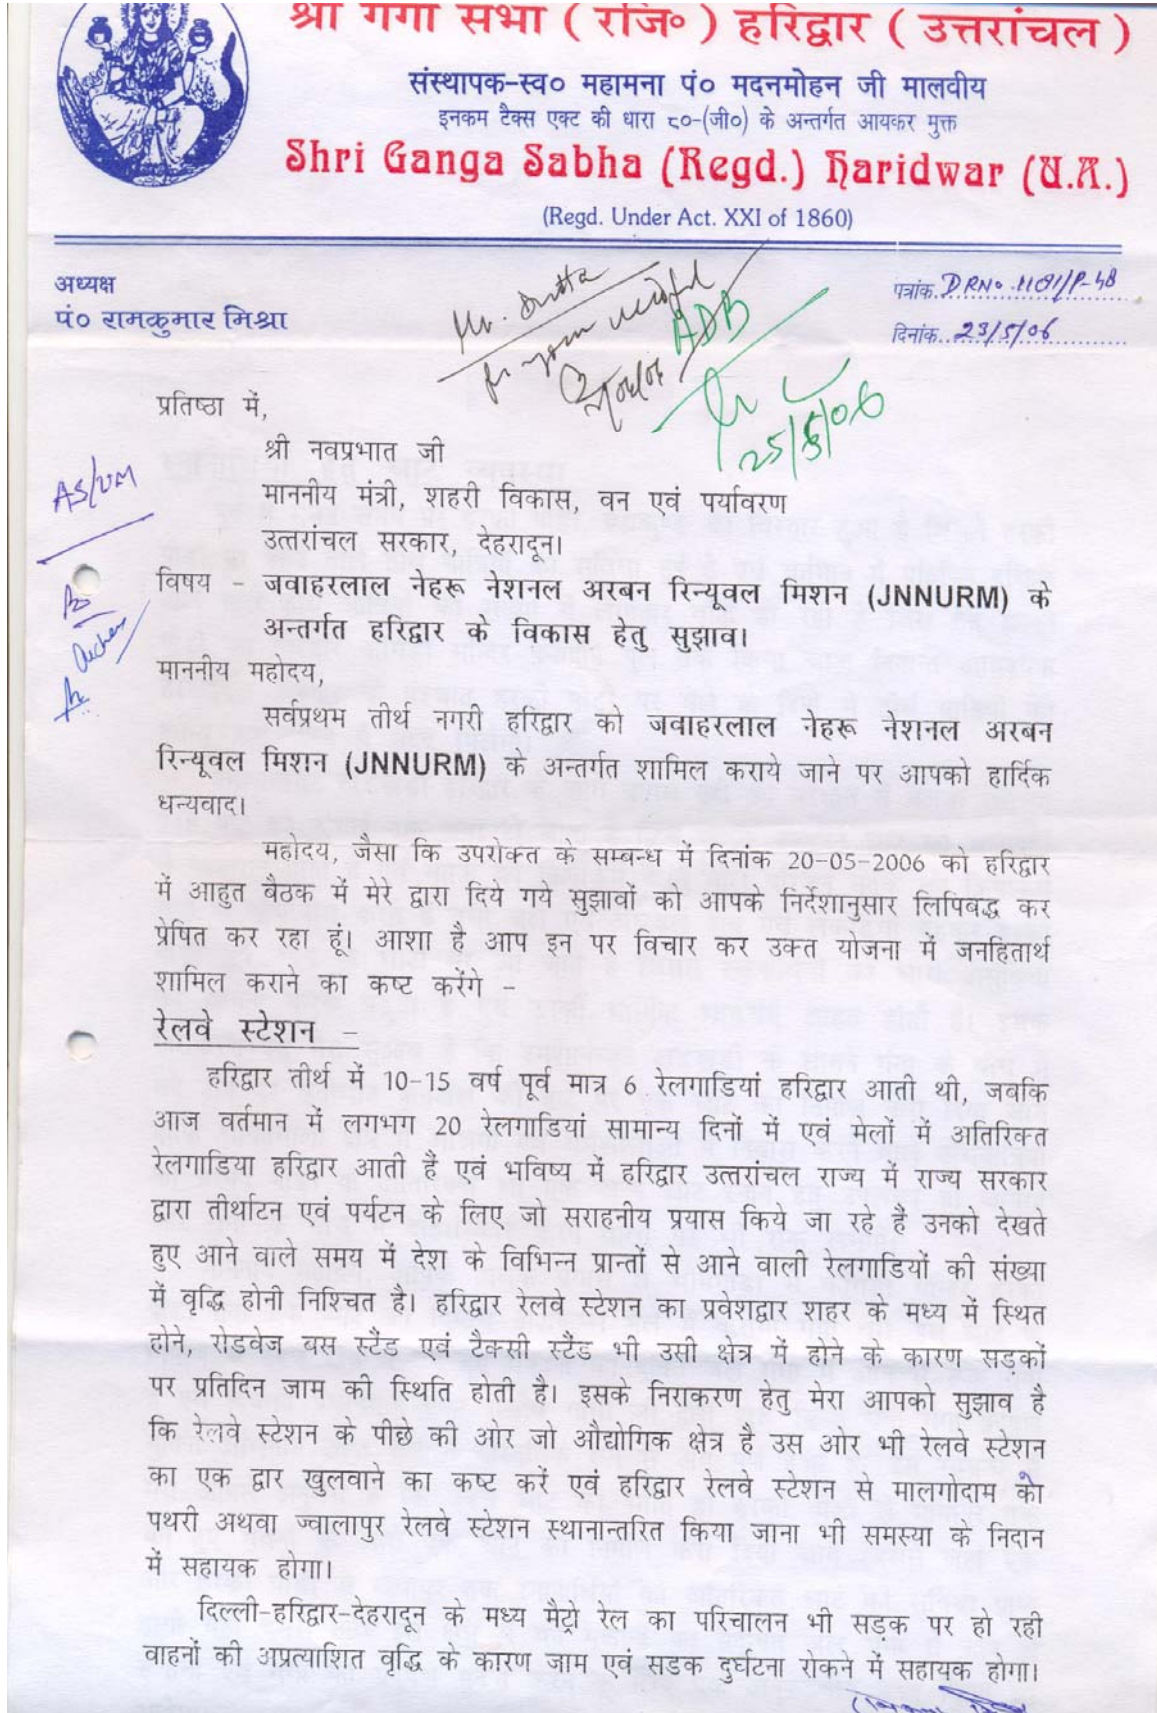 श्री गंगा सभा ( रजि० ) हरिद्वार ( उत्तरांचल )
संस्थापक-स्व० महामना पं० मदनमोहन जी मालवीय
इनकम टैक्स एक्ट की धारा ८०-(जी०) के अन्तर्गत आयकर मुक्त
Shri Ganga Sabha (Regd.) Haridwar (U.A.)
(Regd. Under Act. XXI of 1860)
अध्यक्ष
पं० रामकुमार मिश्रा
पत्रांक DRNo 1181/P-48
दिनांक 23/5/06
Mr. Dutta
ADB
25/5/06
AS/UM
प्रतिष्ठा में,
श्री नवप्रभात जी
माननीय मंत्री, शहरी विकास, वन एवं पर्यावरण
उत्तरांचल सरकार, देहरादून।
विषय - जवाहरलाल नेहरू नेशनल अरबन रिन्यूवल मिशन (JNNURM) के
अन्तर्गत हरिद्वार के विकास हेतु सुझाव।
माननीय महोदय,
सर्वप्रथम तीर्थ नगरी हरिद्वार को जवाहरलाल नेहरू नेशनल अरबन
रिन्यूवल मिशन (JNNURM) के अन्तर्गत शामिल कराये जाने पर आपको हार्दिक
धन्यवाद।
महोदय, जैसा कि उपरोक्त के सम्बन्ध में दिनांक 20-05-2006 को हरिद्वार
में आहुत बैठक में मेरे द्वारा दिये गये सुझावों को आपके निर्देशानुसार लिपिबद्ध कर
प्रेषित कर रहा हूं। आशा है आप इन पर विचार कर उक्त योजना में जनहितार्थ
शामिल कराने का कष्ट करेंगे -
रेलवे स्टेशन -
हरिद्वार तीर्थ में 10-15 वर्ष पूर्व मात्र 6 रेलगाडियां हरिद्वार आती थी, जबकि
आज वर्तमान में लगभग 20 रेलगाडियां सामान्य दिनों में एवं मेलों में अतिरिक्त
रेलगाडिया हरिद्वार आती हैं एवं भविष्य में हरिद्वार उत्तरांचल राज्य में राज्य सरकार
द्वारा तीर्थाटन एवं पर्यटन के लिए जो सराहनीय प्रयास किये जा रहे हैं उनको देखते
हुए आने वाले समय में देश के विभिन्न प्रान्तों से आने वाली रेलगाडियों की संख्या
में वृद्धि होनी निश्चित है। हरिद्वार रेलवे स्टेशन का प्रवेशद्वार शहर के मध्य में स्थित
होने, रोडवेज बस स्टैंड एवं टैक्सी स्टैंड भी उसी क्षेत्र में होने के कारण सड़कों
पर प्रतिदिन जाम की स्थिति होती है। इसके निराकरण हेतु मेरा आपको सुझाव है
कि रेलवे स्टेशन के पीछे की ओर जो औद्योगिक क्षेत्र है उस ओर भी रेलवे स्टेशन
का एक द्वार खुलवाने का कष्ट करें एवं हरिद्वार रेलवे स्टेशन से मालगोदाम को
पथरी अथवा ज्वालापुर रेलवे स्टेशन स्थानान्तरित किया जाना भी समस्या के निदान
में सहायक होगा।
दिल्ली-हरिद्वार-देहरादून के मध्य मैट्रो रेल का परिचालन भी सड़क पर हो रही
वाहनों की अप्रत्याशित वृद्धि के कारण जाम एवं सडक दुर्घटना रोकने में सहायक होगा।